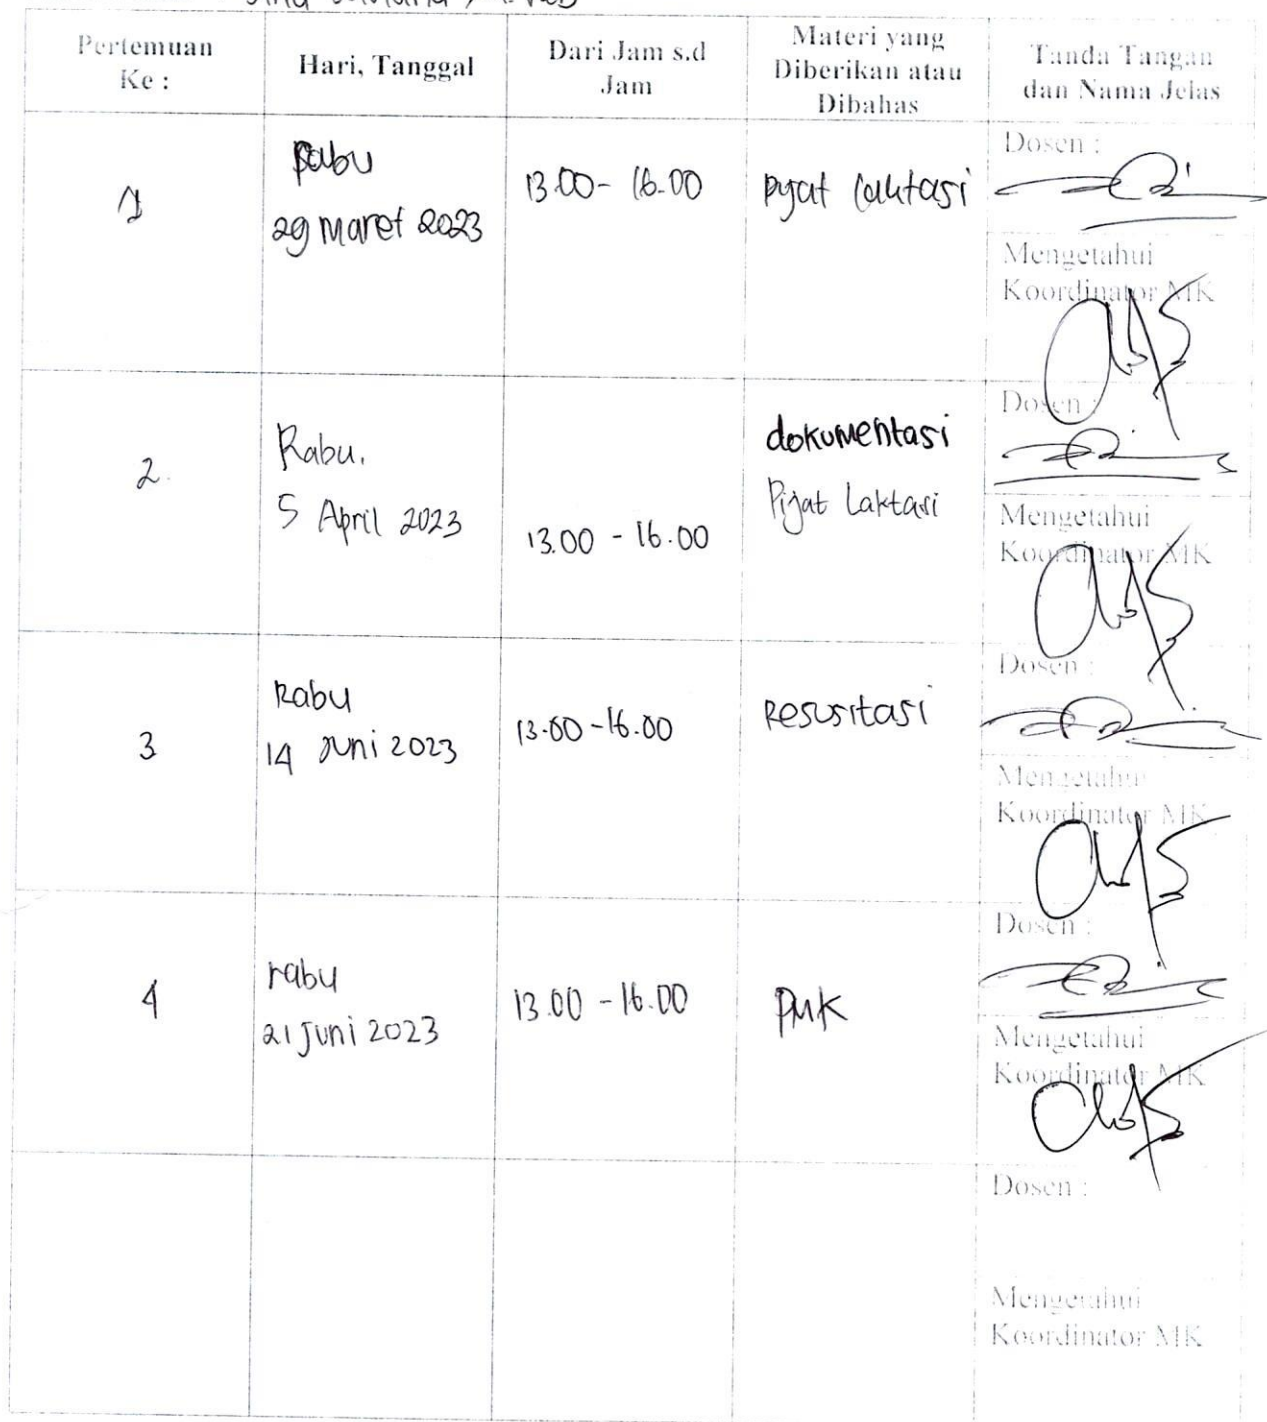 Pertemuan
Ke :
Hari, Tanggal
Dari Jam s.d
Jam
Materi yang
Diberikan atau
Dibahas
Tanda Tangan
dan Nama Jelas
1
Rabu
29 Maret 2023
13.00 - 16.00
pijat laktasi
Dosen :
Mengetahui
Koordinator MK
2.
Rabu.
5 April 2023
13.00 - 16.00
dokumentasi
Pijat Laktasi
Dosen :
Mengetahui
Koordinator MK
3
Rabu
14 Juni 2023
13.00 - 16.00
Resusitasi
Dosen :
Mengetahui
Koordinator MK
4
rabu
21 Juni 2023
13.00 - 16.00
PMK
Dosen :
Mengetahui
Koordinator MK
Dosen :
Mengetahui
Koordinator MK